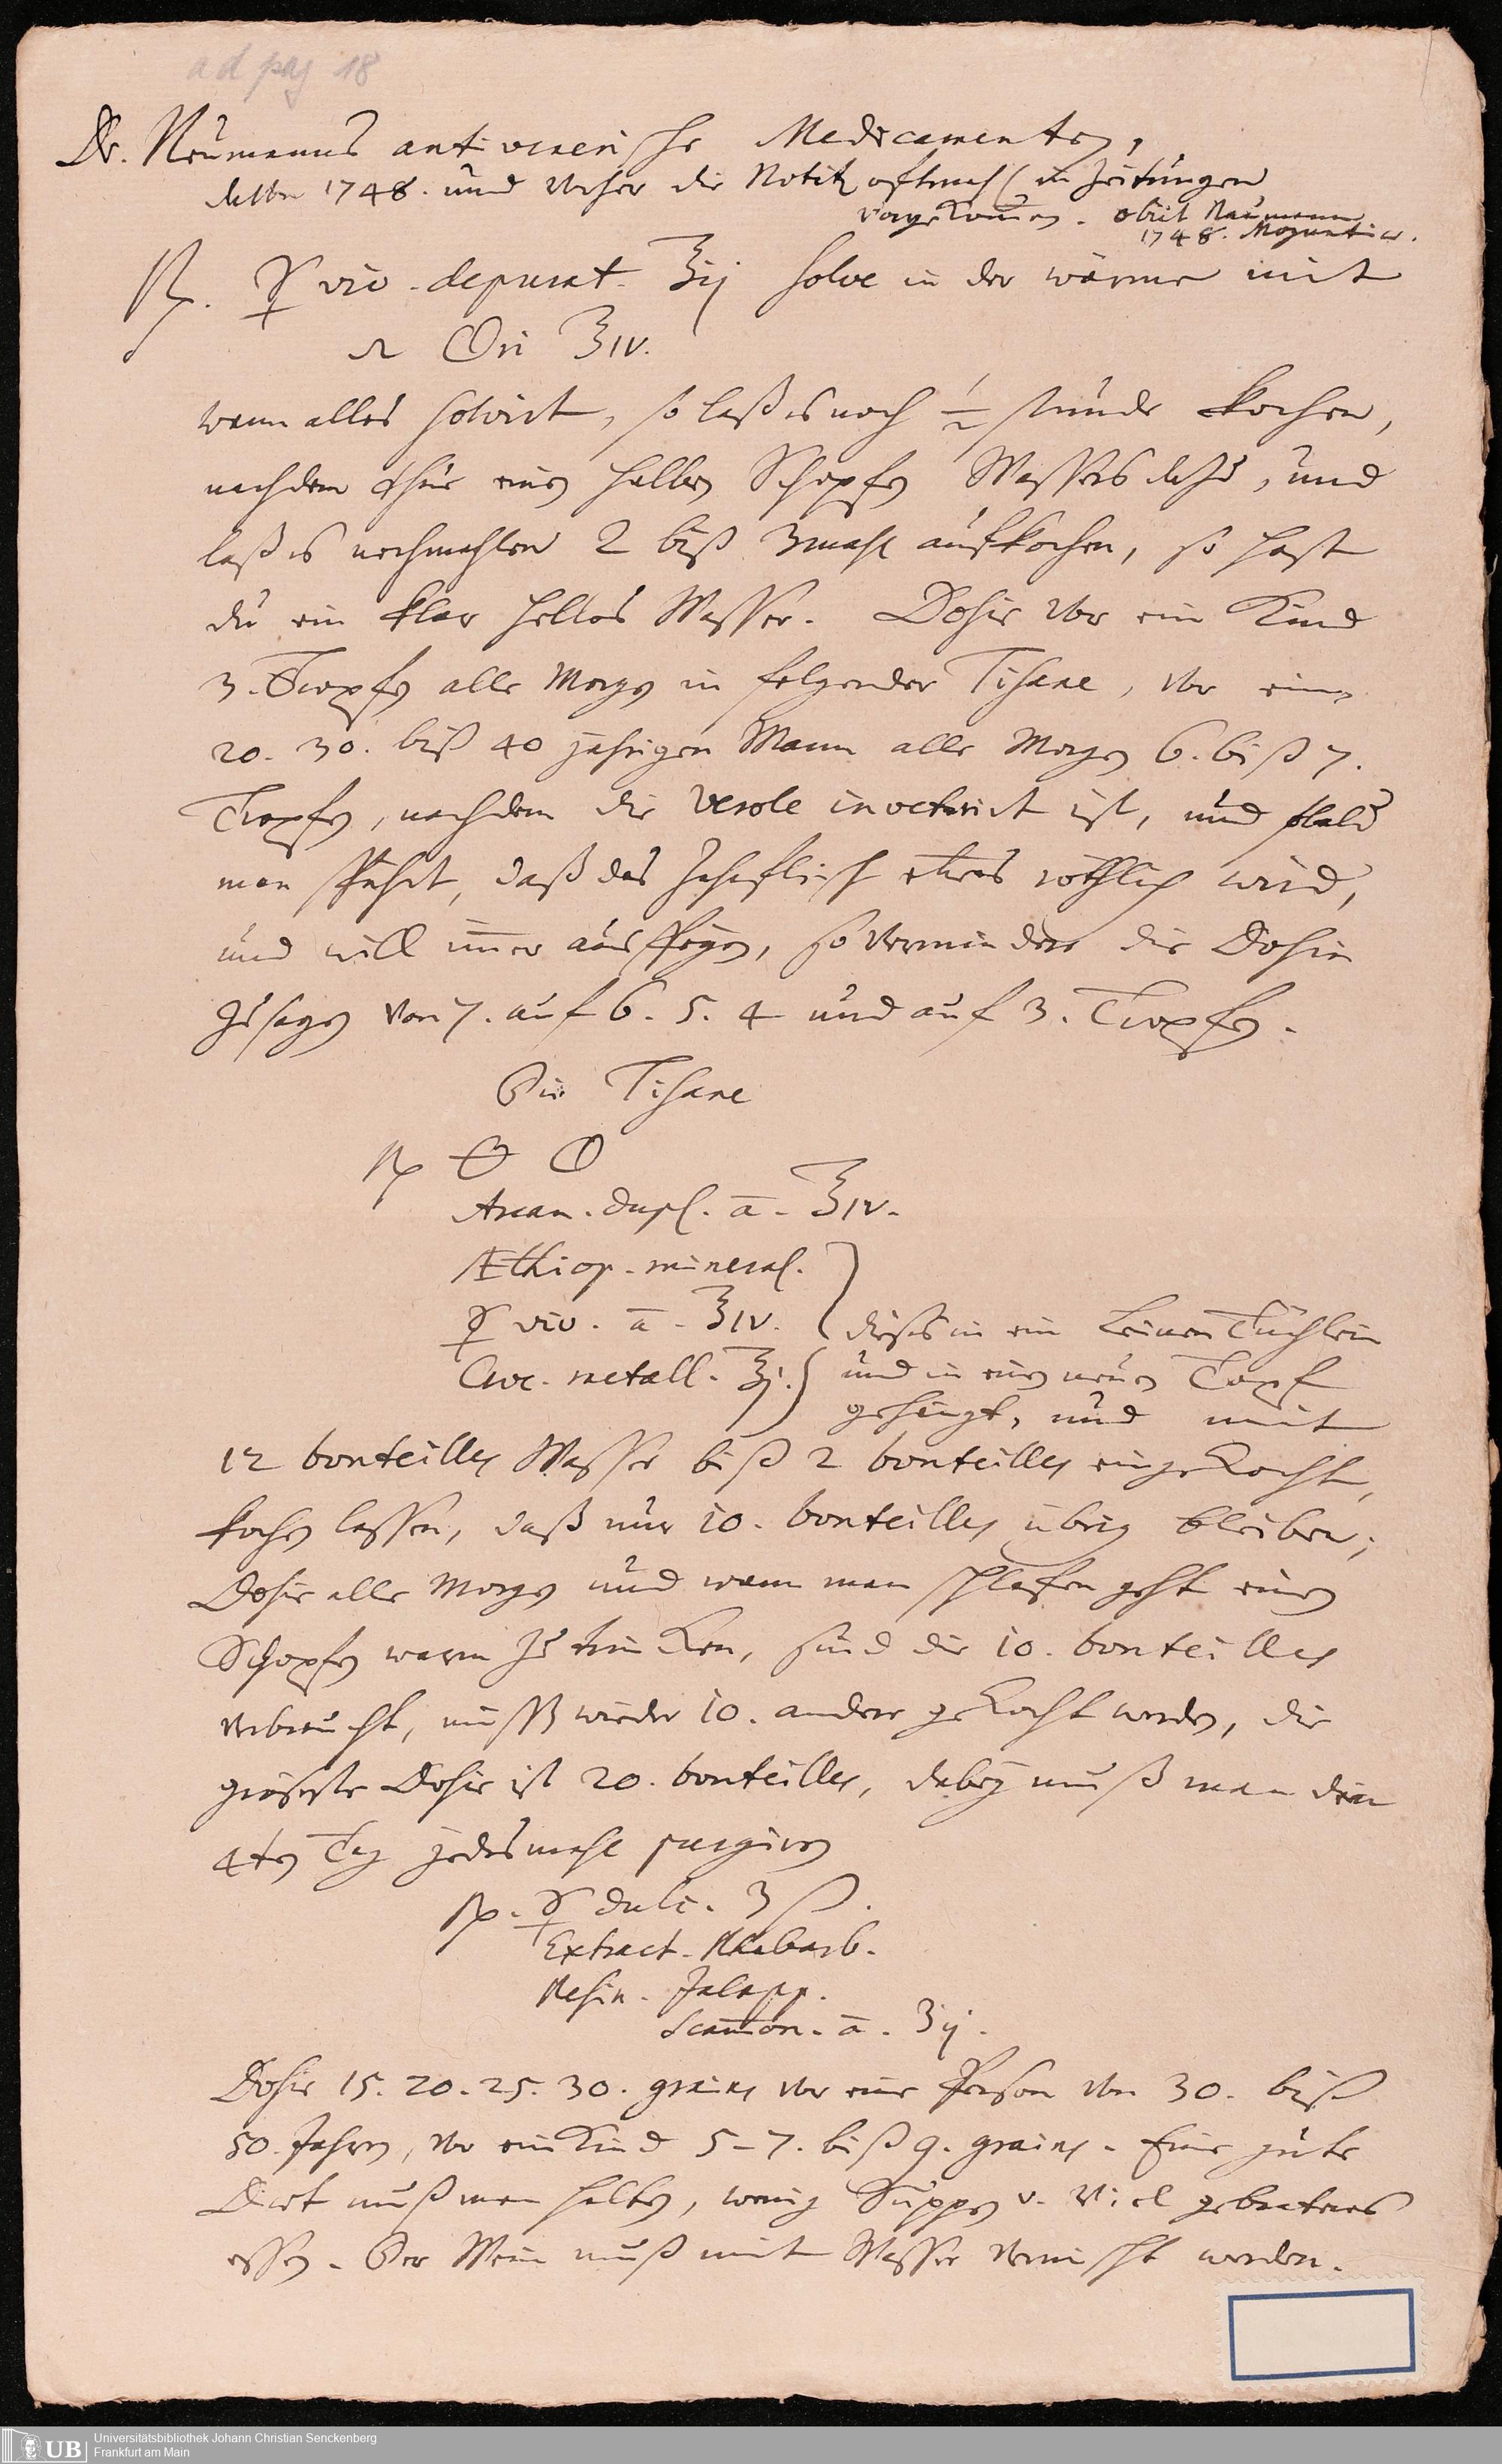 ad pag 18
Dr. Neumanns antivenerische Medicamenten,
1748. und die Notiz oftmahl in Zeitungen
vorgekom̄en. obiit Naumann
1748. Moguntiæ.
℞. ☿ viv. depurat. ℥ij solve in der wärme mit
Ӡiv.
wann alles solvirt, so laß es noch ½ stunde kochen,
nachdem thue einen halben Schopfen Wassers dazu, und
laß es nochmahlen 2 biß 3mahl aufkochen, so hast
du ein klar helles Wasser. Dosis vor ein Kind
3. Tropfen alle Morgen in folgender Tisane, vor einen
20. 30. biß 40 jährigen Mann alle Morgen 6. biß 7.
Tropfen, nachdem die Verole inveterirt ist, und sobald
man spührt, daß das Zahnfleisch etwas röthlich wird,
und will im̄er ausspeyen, so vermindere die Dosin
zusagen von 7. auf 6. 5. 4 und auf 3. Tropfen.
Die Tisane
℞
Arcan. dupl. ā. ℥iv.
Æthiop. mineral.
☿ viv. ā. ℥iv. dieses in ein Leinen Tüchlein
Croc. metall. ℥j. und in einen neuen Topf
gehengt, und mit
12 bouteilles Wasser biß 2 bouteilles eingekocht,
kochen lassen, daß nur 10. bouteilles übrig bleiben;
Dosis alle Morgen und wann man schlafen geht einen
Schopfen warm zu trincken, sind die 10. bouteilles
verbraucht, müssen wieder 10. andere gekocht werden, die
größeste Dosis ist 20. bouteilles, dabey muß man den
4ten Tag jedesmahl purgiren
℞. ☿ dulc. ʒß.
Extract. Rhabarb.
Resin. Jalapp.
Scam̄on. ā. ʒij.
Dosis 15. 20. 25. 30. grains vor eine Person von 30. biß
50. Jahren, vor ein Kind 5-7. biß 9. grains. Eine gute
Diæt muß man halten, wenig Suppen v. viel gebratenes
essen. Der Wein muß mit Wasser vermischt werden.
UB
Universitätsbibliothek Johann Christian Senckenberg
Frankfurt am Main